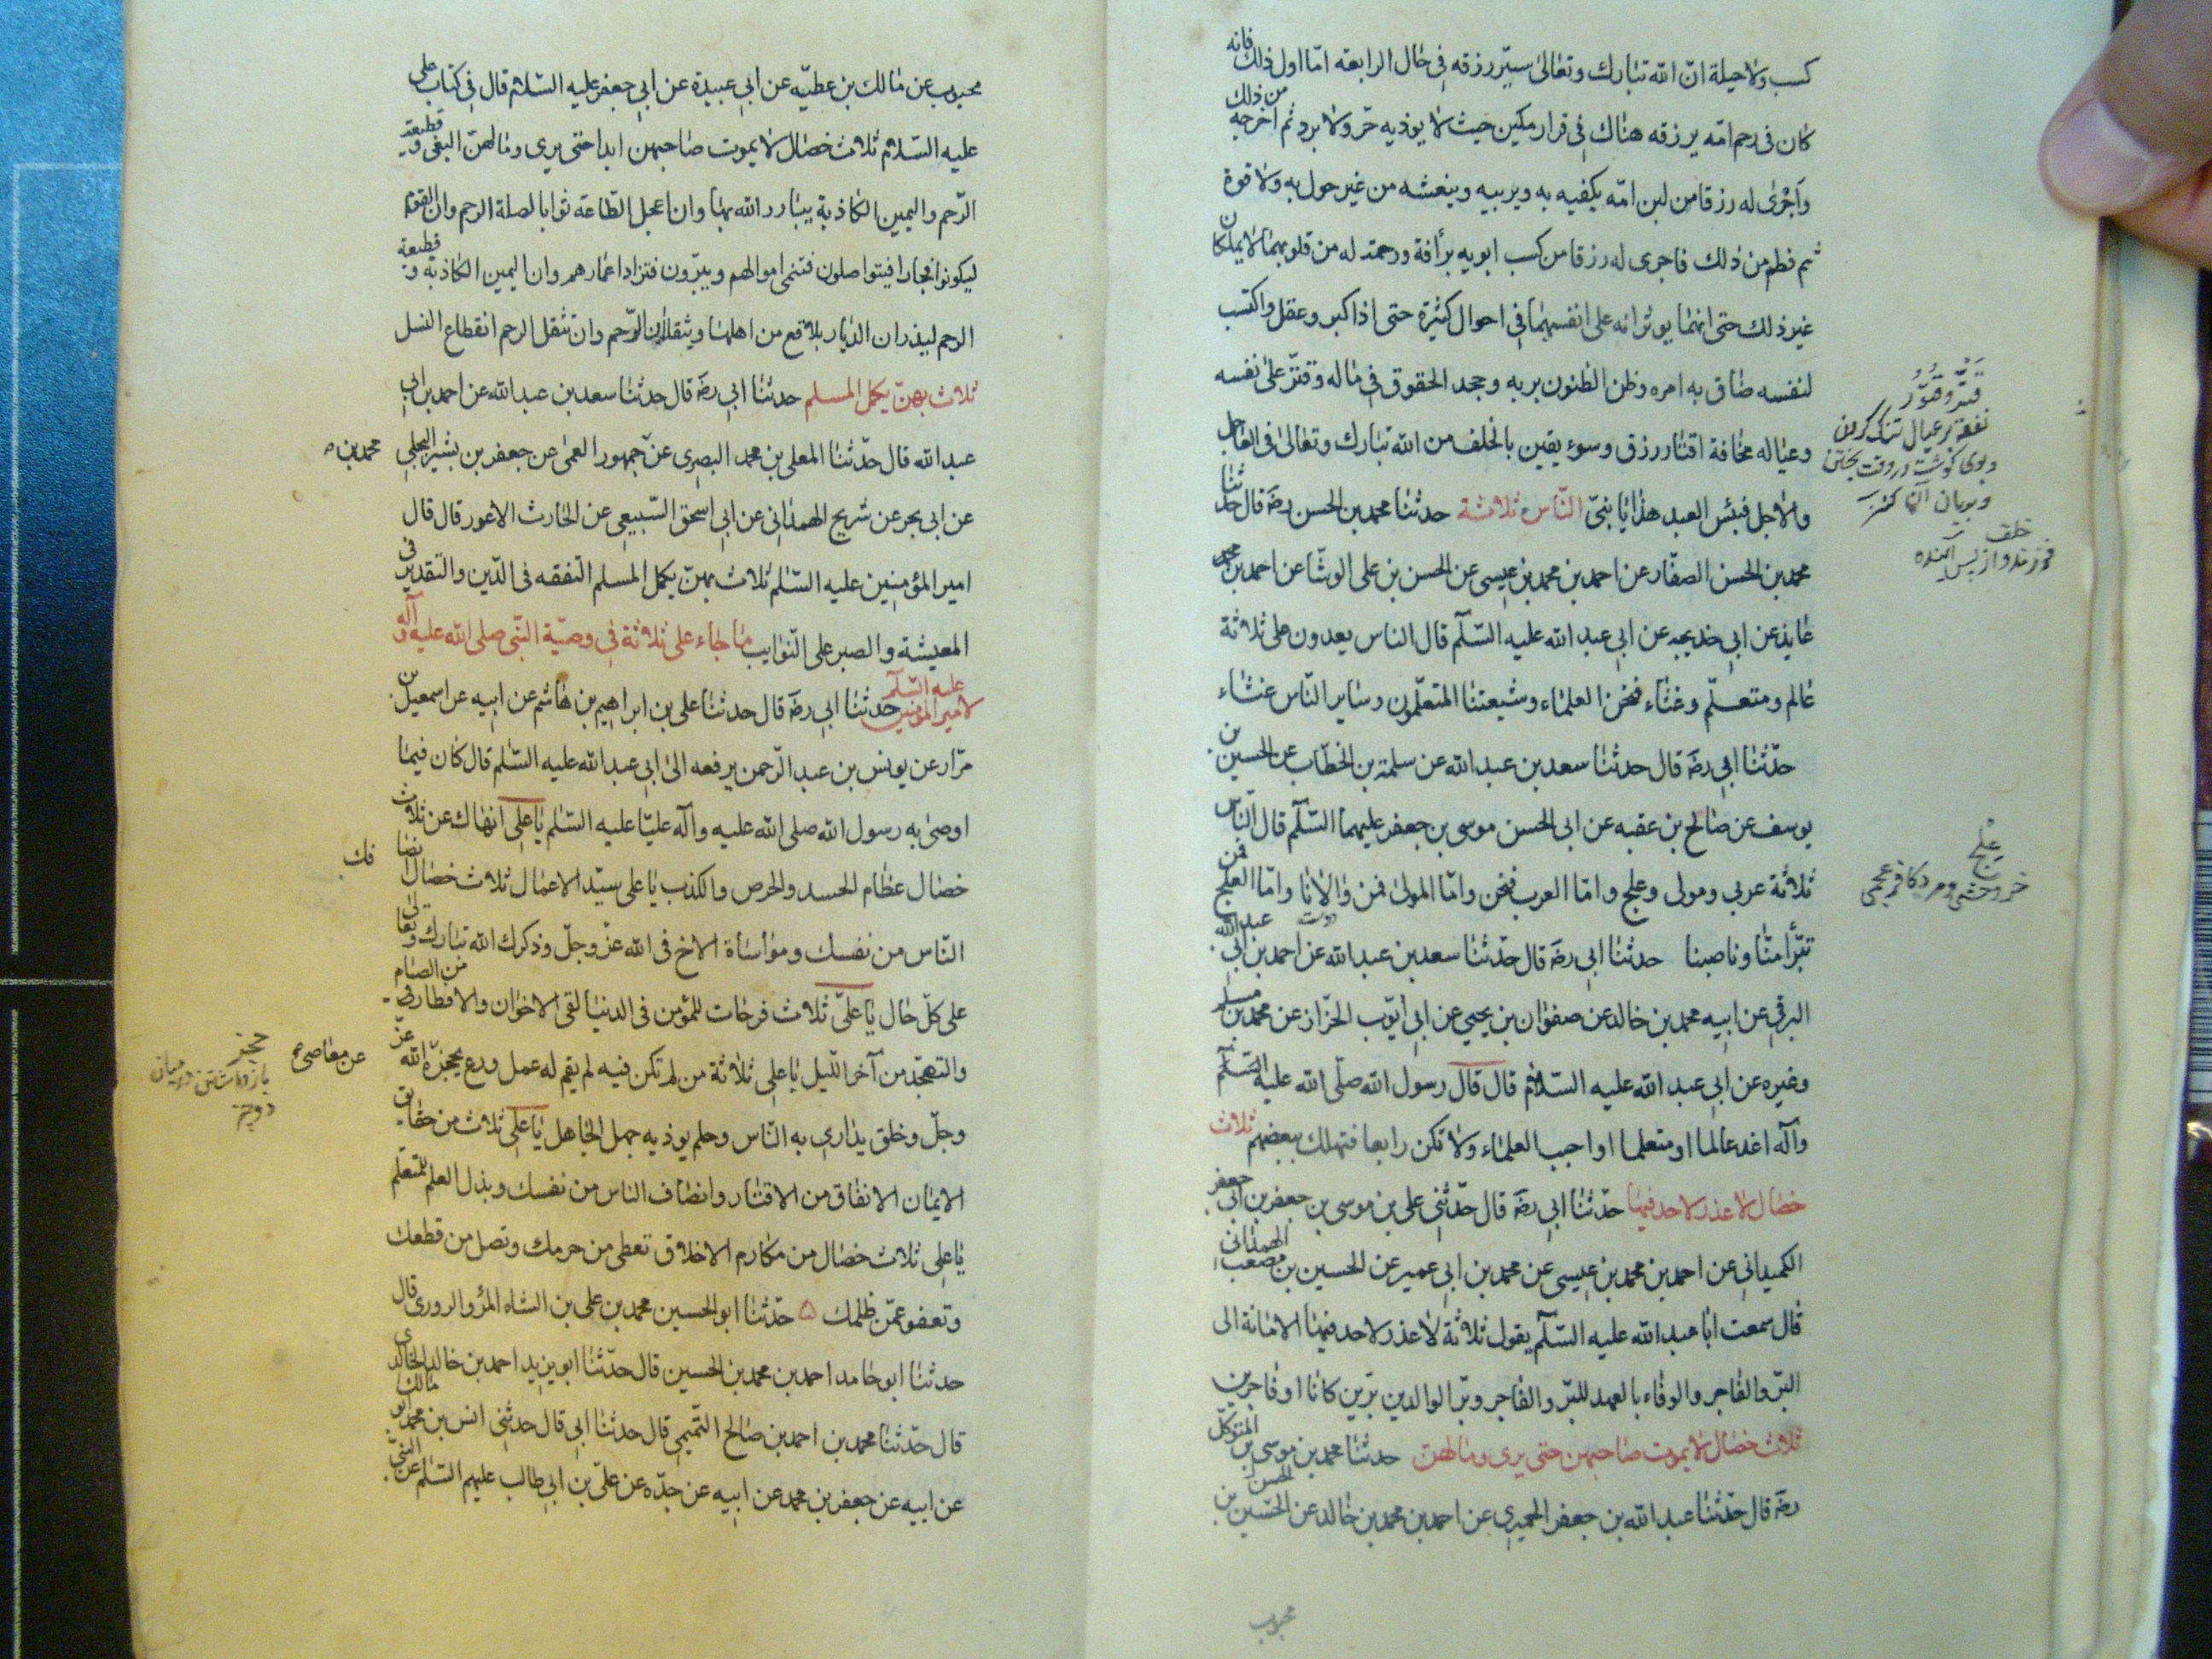 كسب ولا حيلة ان الله تبارك وتعالى سيرزقه في حال الرابعه اما اول ذلك فانه
كان في رحم امه يرزقه هناك في قرار مكين حيث لا يوذيه حر ولا برد ثم اخرجه من ذلك
واجرى له رزقا من لبن امه يكفيه به ويربيه وينعشه من غير حول به ولا قوة
ثم فطم من ذلك فاجرى له رزقا من كسب ابويه برأفة ورحمة له من قلوبهما لا يملكان
غير ذلك حتى انهما يوثرانه على انفسهما في احوال كثيرة حتى اذا كبر وعقل واكتسب
لنفسه ضاق به امره وظن الظنون بربه وجحد الحقوق في ماله وقتر على نفسه
وعياله مخافة اقتار رزق وسوء يقين بالخلف من الله تبارك وتعالى في العاجل
والاجل فبئس العبد هذا يا بنى الناس ثلاثة حدثنا محمد بن الحسن رضه قال حدثنا
محمد بن الحسن الصفار عن احمد بن محمد بن عيسى عن الحسن بن على الوشا عن احمد بن محمد
عايذ عن ابي خديجه عن ابي عبد الله عليه السلم قال الناس يعدون على ثلاثة
عالم ومتعلم وغثاء فنحن العلماء وشيعتنا المتعلمون وساير الناس غثاء
حدثنا ابي رضه قال حدثنا سعد بن عبد الله عن سلمة بن الخطاب عن الحسين بن
يوسف عن صالح بن عقبه عن ابى الحسن موسى بن جعفر عليهما السلم قال الناس
ثلاثة عربى ومولى وعلج واما العرب فنحن واما المولى فمن والانا واما العلج فمن
تبرأ منا وناصبنا حدثنا ابي رضه قال حدثنا سعد بن عبد الله عن احمد بن ابي عبد الله
البرقي عن ابيه محمد بن خالد عن صفوان بن يحيى عن ابي ايوب الخزاز عن محمد بن مسلم
وغيره عن ابي عبد الله عليه السلام قال قال رسول الله صلى الله عليه السلم
وآله اغد عالما او متعلما او احب العلماء ولا تكن رابعا فتهلك ببغضهم ثلاث
خصال لا عذر لاحد فيها حدثنا ابي رضه قال حدثنى على بن موسى بن جعفر بن ابى جعفر
الكميدانى عن احمد بن محمد بن عيسى عن محمد بن ابي عمير عن الحسين بن مصعب الهمدانى
قال سمعت ابا عبد الله عليه السلم يقول ثلاثة لا عذر لاحد فيها الامانة الى
البر والفاجر والوفاء بالعهد للبر والفاجر وبر الوالدين برين كانا او فاجرين
ثلاث خصال لا يموت صاحبهن حتى يرى وبالهن حدثنا محمد بن موسى بن المتوكل
رضه قال حدثنا عبد الله بن جعفر الحميرى عن احمد بن محمد بن خالد عن الحسين بن
محبوب
نفقة بر عيال تنك كردن
خلف
علج
محبوب عن مالك بن عطيه عن ابي عبيدة عن ابي جعفر عليه السلام قال في كتاب على
عليه السلام ثلاث خصال لا يموت صاحبهن ابدا حتى يرى وبالهن البغى وقطيعة
الرحم واليمين الكاذبة يبارز الله بها وان اعجل الطاعة ثوابا لصلة الرحم وان القوم
ليكونوا فجارا فيتواصلون فتنمى اموالهم ويبرون فتزاد اعمارهم وان اليمين الكاذبة وقطيعة
الرحم ليذران الديار بلاقع من اهلها ويثقلان الرحم وان تثقل الرحم انقطاع النسل
ثلاث بهن يكمل المسلم حدثنا ابي رضه قال حدثنا سعد بن عبد الله عن احمد بن ابى
عبد الله قال حدثنا المعلى بن محمد البصرى عن جمهور العمى عن جعفر بن بشير البجلى
محمد بن
عن ابى بحر عن شريح الهمدانى عن ابي اسحق السبيعى عن الحارث الاعور قال قال
امير المؤمنين عليه السلم ثلاث بهن يكمل المسلم التفقه فى الدين والتقدير فى
المعيشة والصبر على النوايب ما جاء على ثلاثة في وصية النبى صلى الله عليه وآله
لامير المؤمنين عليه السلم حدثنا ابي رضه قال حدثنا على بن ابراهيم بن هاشم عن ابيه عن اسمعيل بن
مرار عن يونس بن عبد الرحمن يرفعه الى ابى عبد الله عليه السلم قال كان فيما
اوصى به رسول الله صلى الله عليه وآله عليا عليه السلم يا على انهاك عن ثلاث
خصال عظام الحسد والحرص والكذب يا على سيد الاعمال ثلاث خصال انصافك
الناس من نفسك ومواساة الاخ فى الله عز وجل وذكرك الله تبارك وتعالى
على كل حال يا على ثلاث فرحات للمؤمن فى الدنيا لقى الاخوان والافطار من الصيام
والتهجد من آخر الليل يا على ثلاثة من لم تكن فيه لم يقم له عمل ورع يحجزه الله عز
عن معاصى
حجز
وجل وخلق يدارى به الناس وحلم يرد به جهل الجاهل يا على ثلاث من حقايق
الايمان الانفاق من الاقتار وانصاف الناس من نفسك وبذل العلم للمتعلم
يا على ثلاث خصال من مكارم الاخلاق تعطى من حرمك وتصل من قطعك
وتعفو عمن ظلمك حدثنا ابو الحسين محمد بن على بن الشاه المرو الرورى قال
حدثنا ابو حامد احمد بن محمد بن الحسين قال حدثنا ابو يزيد احمد بن خالد الخالدى
قال حدثنا محمد بن احمد بن صالح التميمى قال حدثنا ابى قال حدثنى انس بن محمد ابو مالك
عن ابيه عن جعفر بن محمد عن ابيه عن جده عن على بن ابى طالب عليهم السلم عن النبى